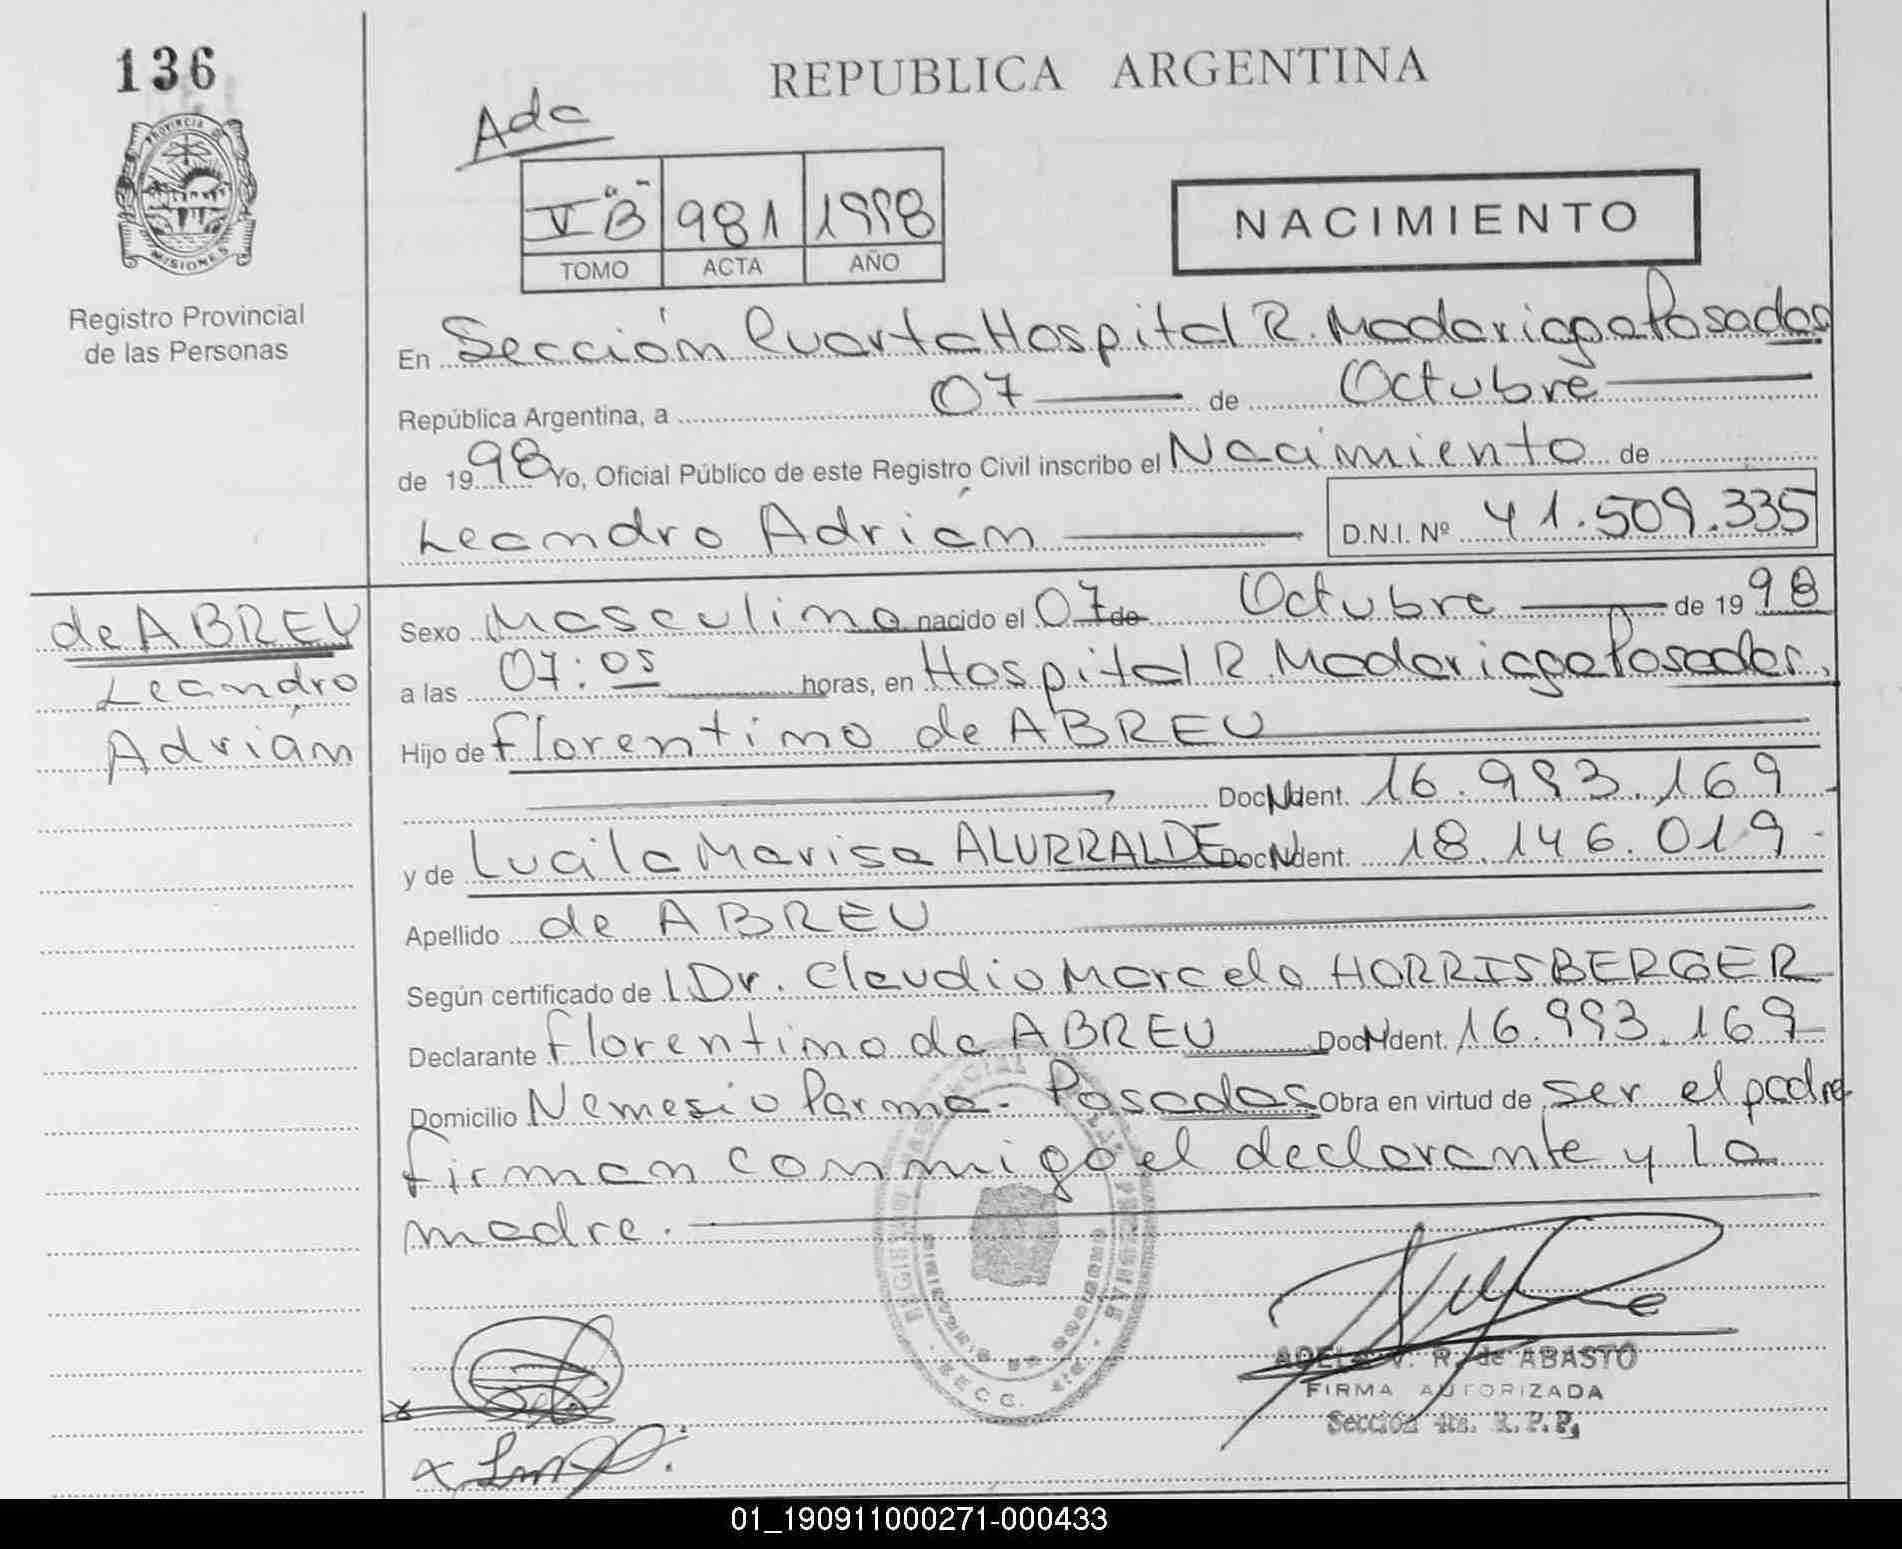 136
REPUBLICA ARGENTINA
Ada
PROVINCIA DE
MISIONES
V "B" 981 1998
TOMO ACTA AÑO
NACIMIENTO
Registro Provincial
de las Personas
En Sección Cuarta Hospital R. Madariaga Posadas
República Argentina, a 07 de Octubre
de 1998 Yo, Oficial Público de este Registro Civil inscribo el Nacimiento de
Leandro Adrián D.N.I. Nº 41.509.335
de ABREU
Leandro
Adrián
Sexo Masculino nacido el 07 de Octubre de 1998
a las 07:05 horas, en Hospital R. Madariaga Posadas.
Hijo de Florentino de ABREU
Doc. Ident. 16.993.169
y de Lucila Marisa ALURRALDE Doc. Ident. 18.146.019
Apellido de ABREU
Según certificado de Dr. Claudio Marcelo HORRISBERGER
Declarante Florentino de ABREU Doc. Ident. 16.993.169
Domicilio Nemesio Parma - Posadas Obra en virtud de ser el padre
firman conmigo el declarante y la
madre.
ADELA V. R. de ABASTO
FIRMA AUTORIZADA
Sección 4ta. R.P.P.
01_190911000271-000433